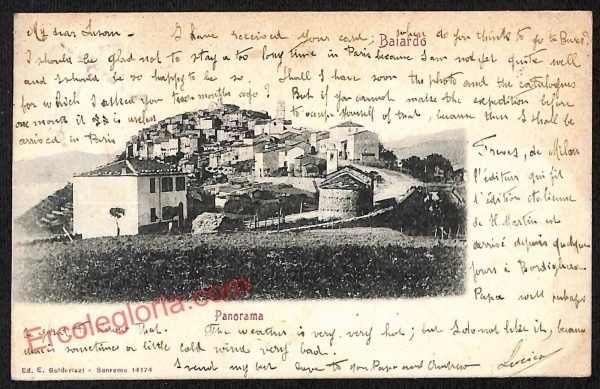 My dear Susom - I have received your card; when do you think to go to Buss?
Baiardo
I should be glad not to stay a too long time in Paris because I am not yet quite well
and I should be so happy to be so. Shall I have soon the photo and the catalogues
for which I asked you two months ago? But if you cannot make the expedition before
one month it is useless to occupe yourself of that, because then I shall be
arrived in Paris
Treves, de Milan
l'éditeur qui fit
l'édition italienne
de St. Martin est
arrivé depuis quelques
jours à Bordighera
Papa will perhaps
Ercolegloria.com
Panorama
that. The weather is very, very hot; but I do not like it, because
there is sometimes a little cold wind very bad.
I send my best love to you, Papa and Andrew
Lucien
Ed. E. Gulderizzi - Sanremo 14174